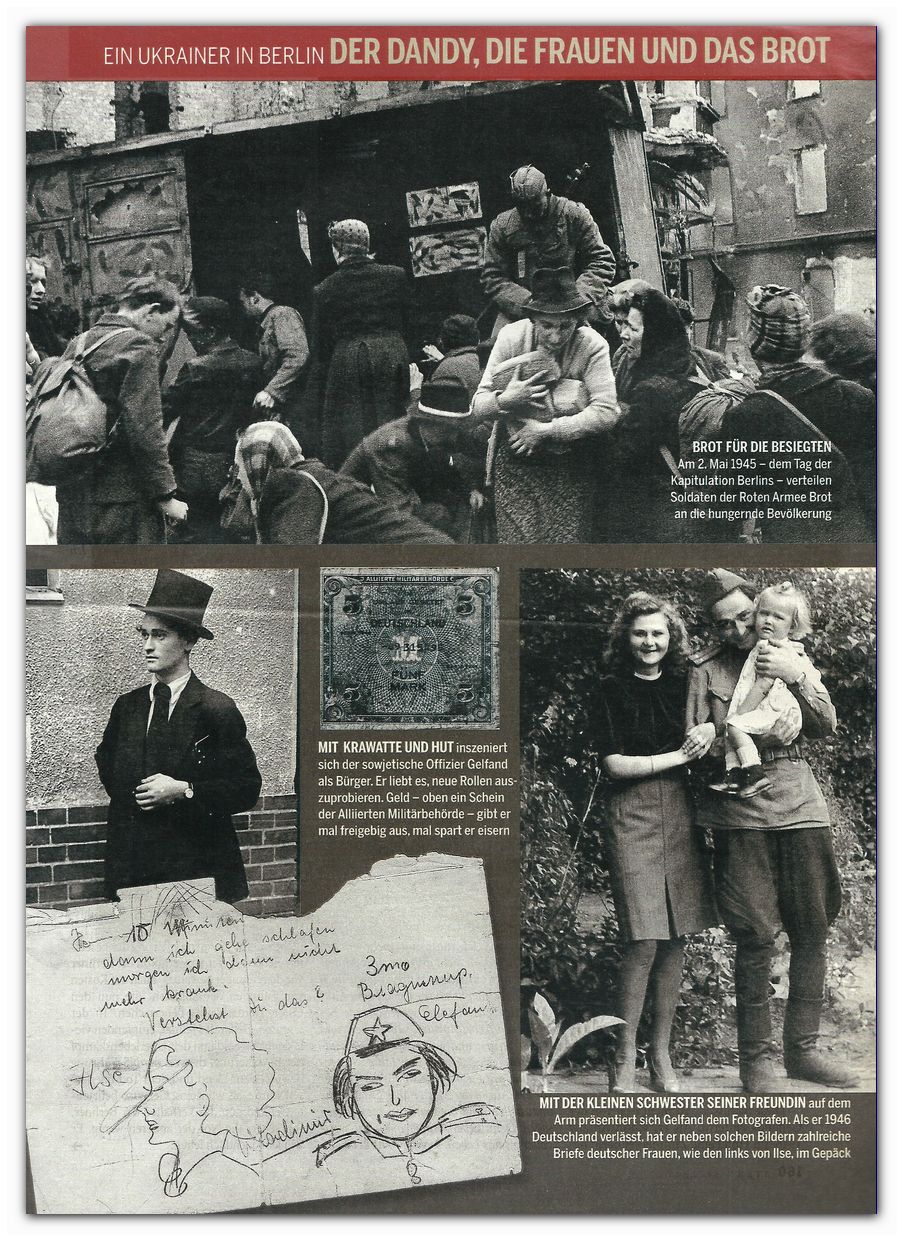 EIN UKRAINER IN BERLIN DER DANDY, DIE FRAUEN UND DAS BROT
BROT FÜR DIE BESIEGTEN
Am 2. Mai 1945 – dem Tag der
Kapitulation Berlins – verteilen
Soldaten der Roten Armee Brot
an die hungernde Bevölkerung
ALLIIERTE MILITÄRBEHÖRDE
5 5
DEUTSCHLAND
FÜNF
MARK
5 5
MIT KRAWATTE UND HUT inszeniert
sich der sowjetische Offizier Gelfand
als Bürger. Er liebt es, neue Rollen aus-
zuprobieren. Geld – oben ein Schein
der Alliierten Militärbehörde – gibt er
mal freigebig aus, mal spart er eisern
10 Minuten
dann ich gehe schlafen
morgen ich dann nicht
mehr krank.
Verstehst du das?
Это
Владимир
Ilse
Wladimir
MIT DER KLEINEN SCHWESTER SEINER FREUNDIN auf dem
Arm präsentiert sich Gelfand dem Fotografen. Als er 1946
Deutschland verlässt, hat er neben solchen Bildern zahlreiche
Briefe deutscher Frauen, wie den links von Ilse, im Gepäck